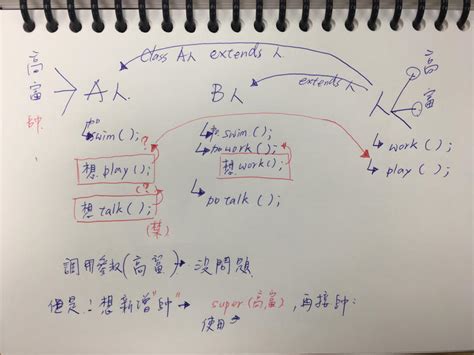 class A人 extends 人
高
富
帥
A人
B人
extends 人
人
高
富
swim();
想 play();
(?)
想 talk();
(?)
(禁)
swim();
work();
想 work();
talk();
work();
play();
調用參數(高富)→沒問題
但是:想新增"帥"→ super(高富),再接帥:
使用→